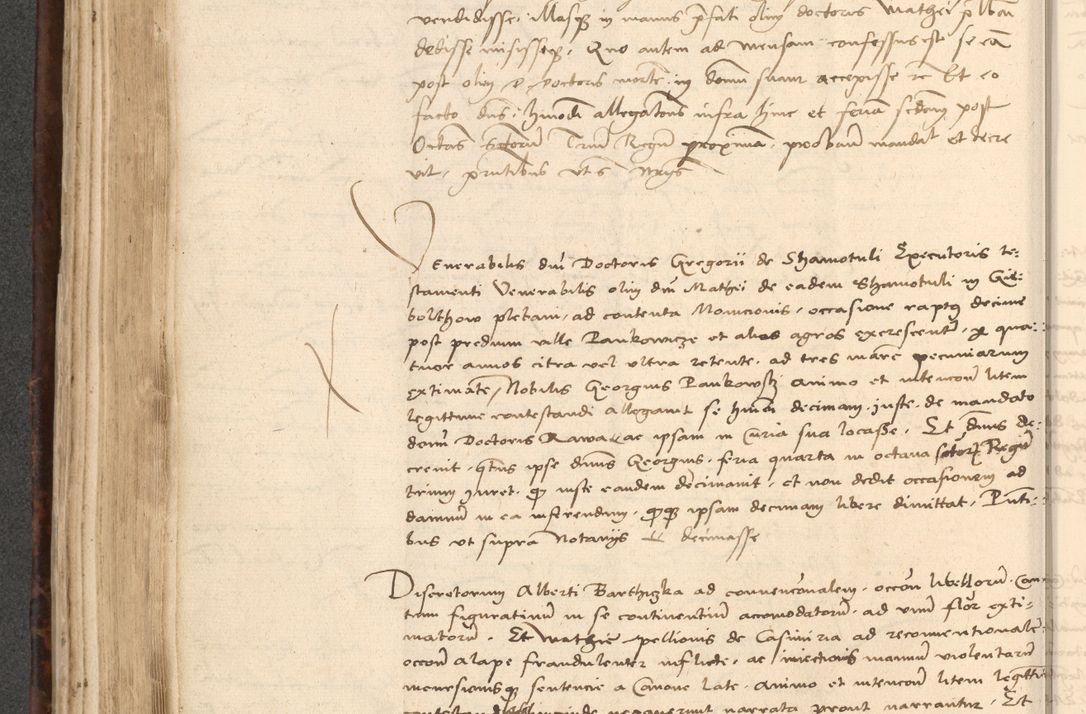 vendidisse, illasq3 in manus pfati olim doctoris Mathei
debisse misisseq3, Quo autem ad mensam confessus est se eā
post olim doctoris mortē in domū suam accepisse rc Et eo
facto dns, hmodi allegatōns infra hinc et feriā secdam post
Octās Trium Regū proximā, probaud mandat et decre
vit, pntibus vt s Nrijs
Venerabilis dni Doctoris Gregorii de Shamotuli Executoris te-
stamenti Venerabilis olim dni Mathei de eadem Shamotuli in
plebani, ad contenta Monicionis, occasione rapte decime
post predium ville Pankowicze et alios agros excrescentn, p qua-
tuor annos citra vel ultra retente, ad tres marc pecuniarum
extimate, Nobilis Georgius Pankowskj animo et intencone litem
legittime contestandi allegauit se hmōi decimam, juste, de mandato
domi Doctoris Rawa, ac ipsam in Curia sua locasse, Et dnus de-
creuit, qtus ipse dnus Georgius, feria quarta in octaua sctorz Regū
trium juret, q iuste eandem decimauit, et non dedit occasionem ad
damnum in ea inferendum, ipsam decimam libere dimittat, Pnti-
bus vt supra Notarijs decimasse
Discretorum Alberti ad conuencōnalem, occōn libellorū,
tem figuratiuū in se continentiū accomodatorū, ad vnū flor exti-
matorū, Et Mathie pellionis de Casimiria ad reconuentionale
occōn alape fraudulenter inflicte, ac iniectionis manuū violentarū
sentencie a Canone late, animo et intencōn litem
negauerunt narrata prout narrantur, Et